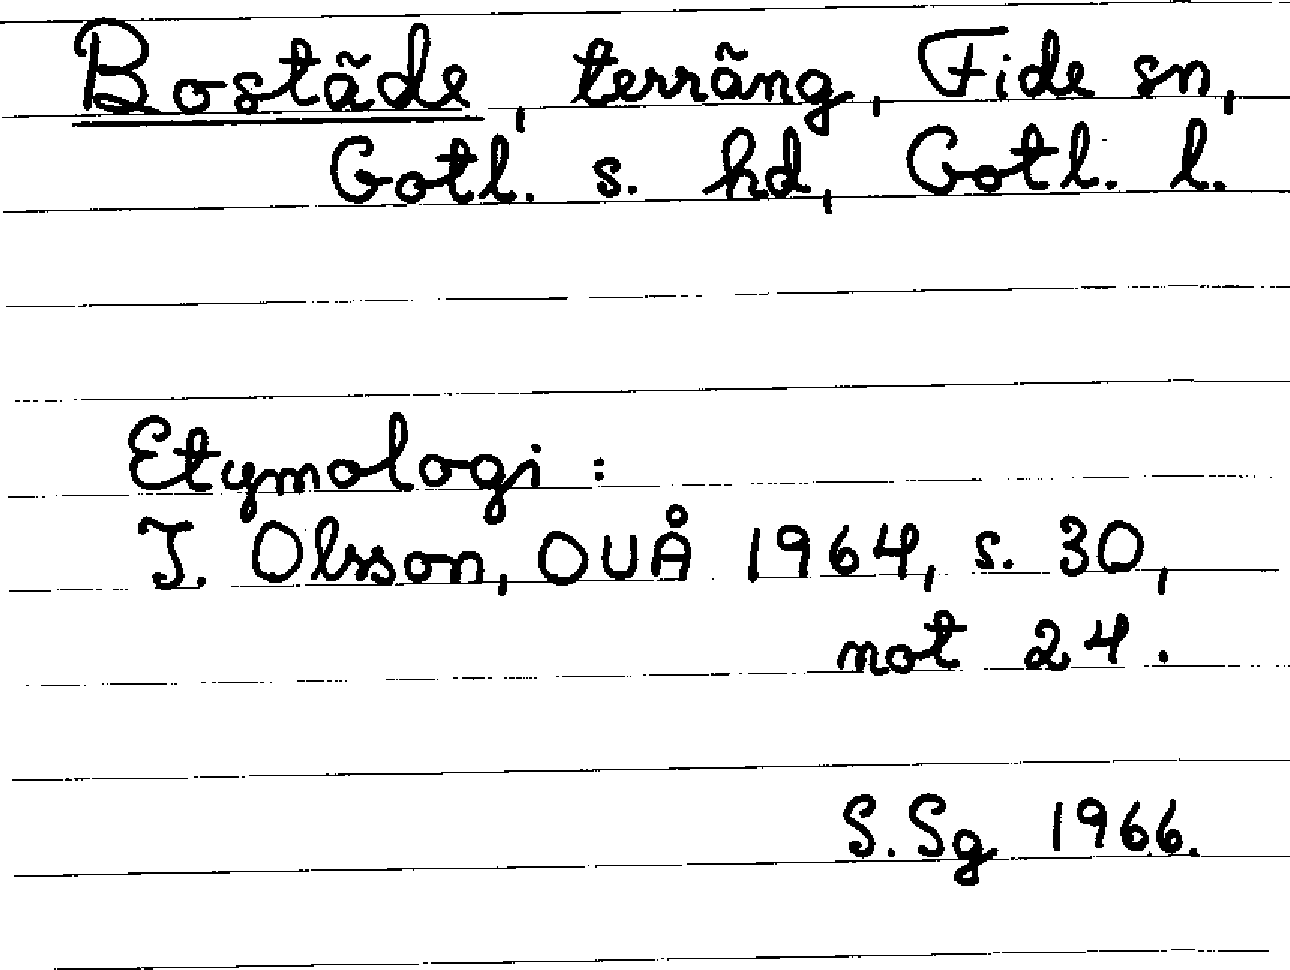 Bostäde, terräng, Fide sn,
Gotl. s. hd, Gotl. l.
Etymologi:
I. Olsson, OUÅ 1964, s. 30,
not 24.
S.Sg 1966.